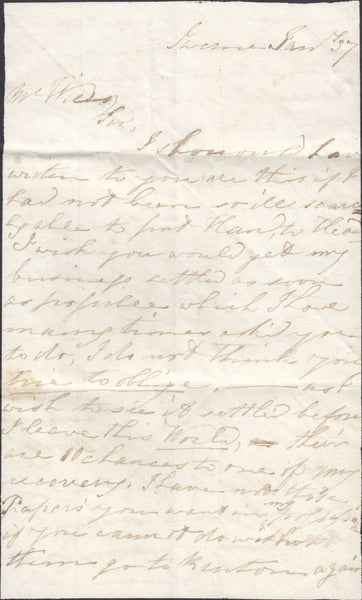 Iwerne Jan 37
Mr Wilds
Sir,
I should have
writen to you are this if I
had not been so ill scarce
ly able to put Hand to Head
I wish you would get my
business settled as soon
as posible which I have
maney times ask'd you
to do, I do not think you
trie to oblige as I
wish to see it settled before
I leave this World, their
are 10 chances to one of my
recovery. I have not these
Papers you want in my possession
if you cannot do without
them go to Benton again